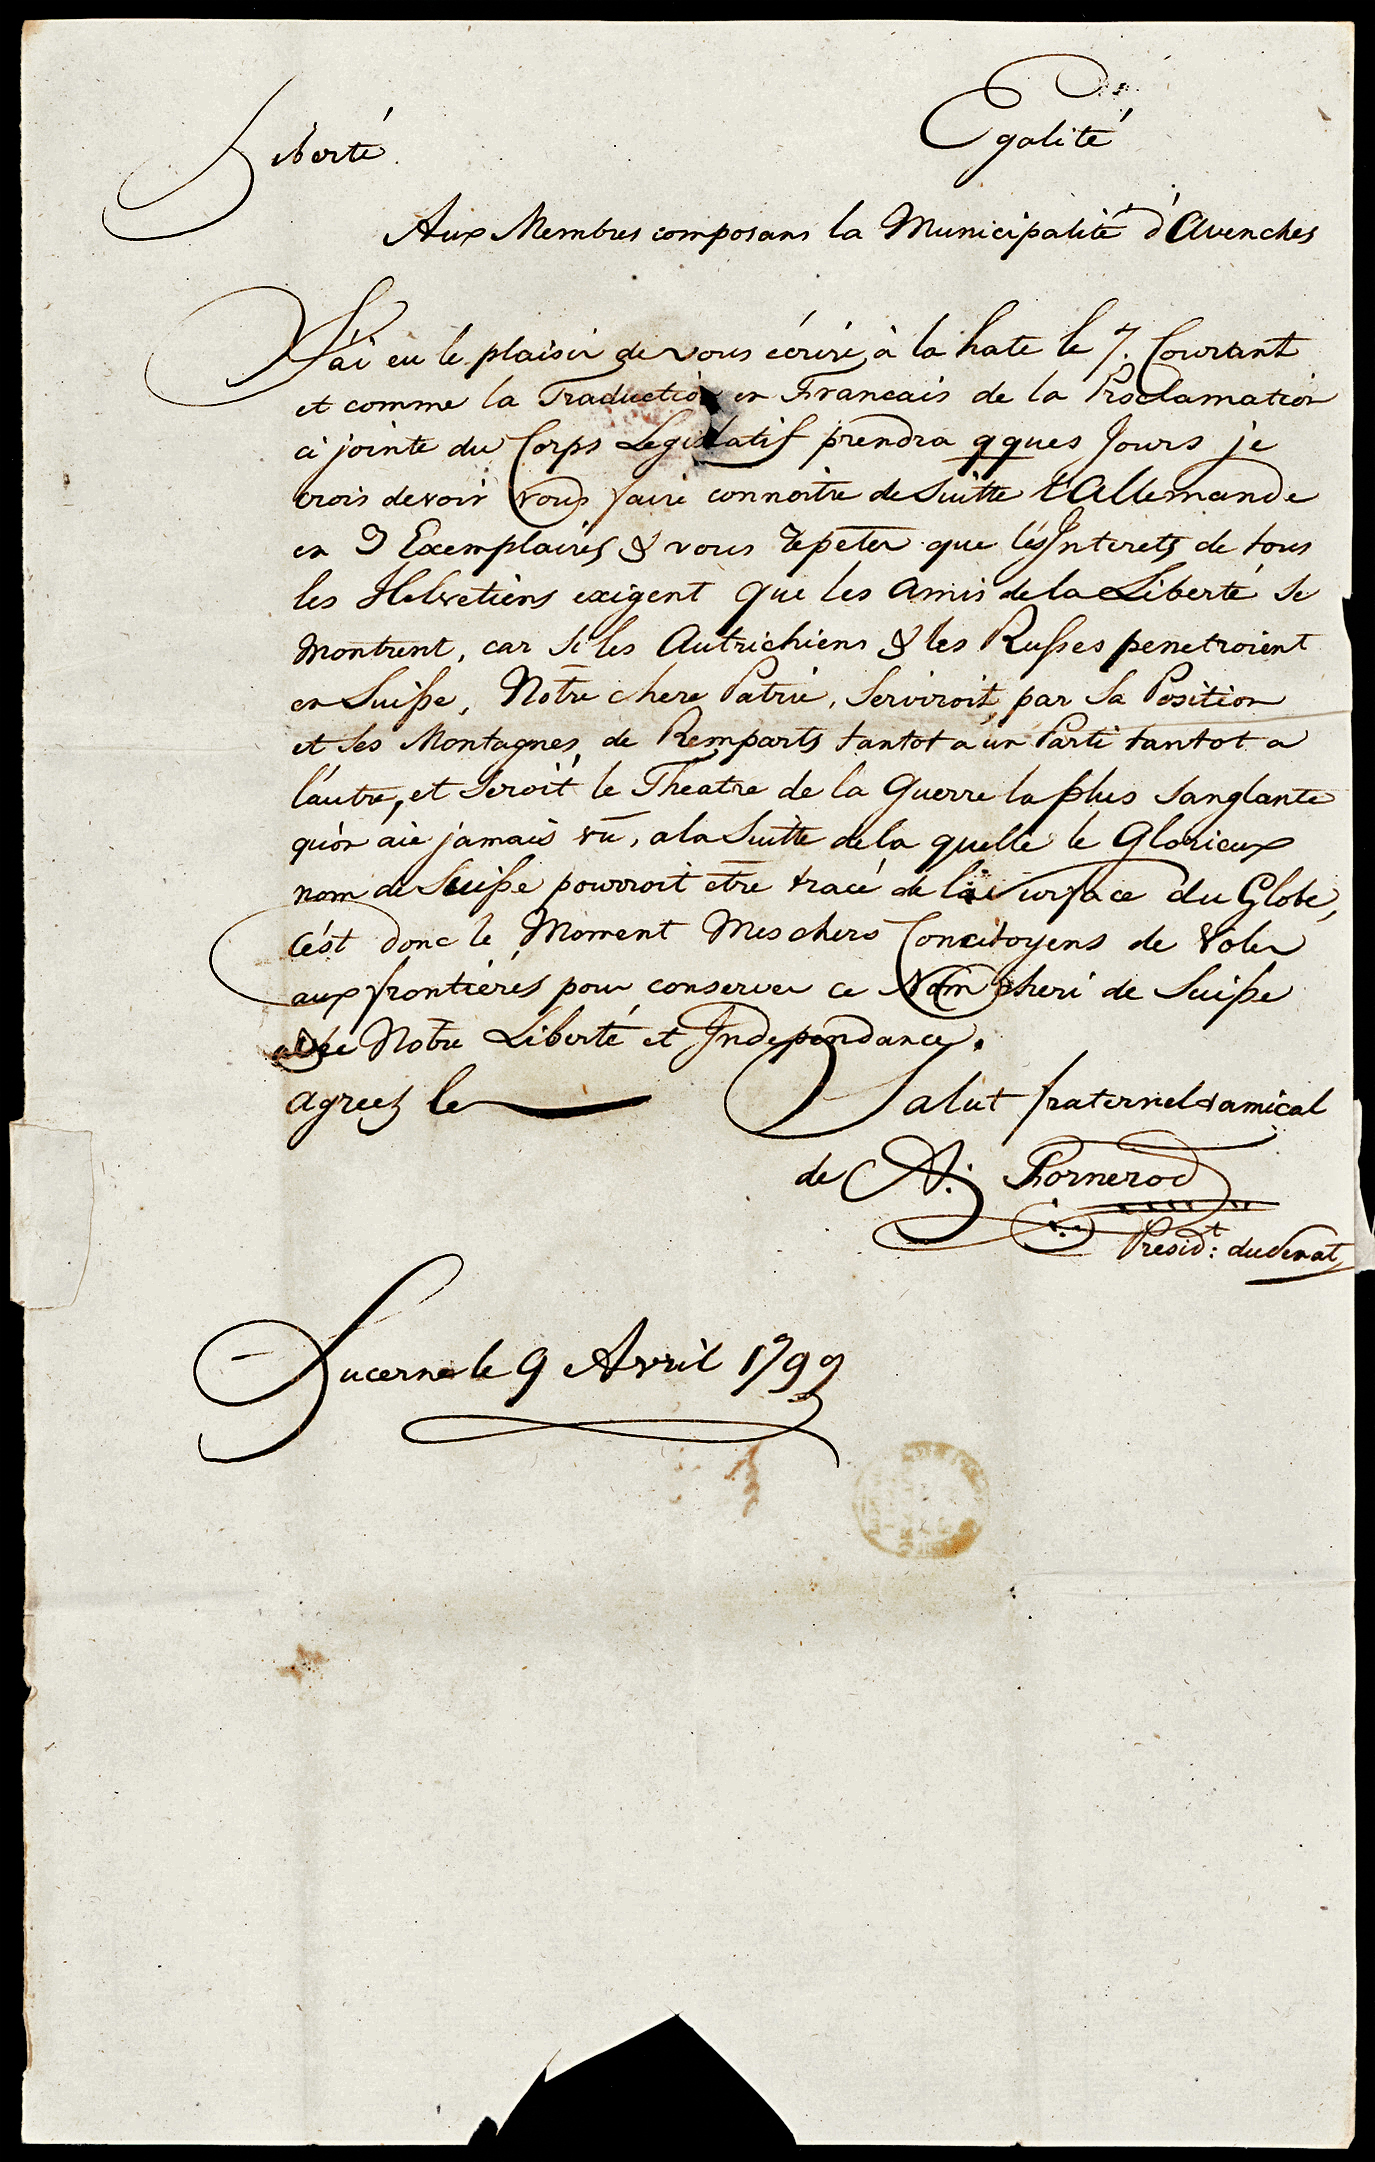 Liberté
Egalité
Aux Membres composans la Municipalité d'Avenches
J'ai eu le plaisir de vous écrire à la hate le 7. Courant
et comme la Traduction en Francais de la Proclamation
ci jointe du Corps Legislatif prendra qques Jours je
crois devoir vous faire connoitre de Suitte l'Allemande
en 3 Exemplaires & vous repeter que les Interets de tous
les Helvetiens exigent que les Amis de la Liberté se
Montrent, car si les Autrichiens & les Russes penetroient
en Suisse, Notre chere Patrie, Serviroit, par Sa Position
et ses Montagnes, de Remparts tantot a un Parti tantot a
l'autre, et Seroit le Theatre de la Guerre la plus Sanglante
qu'on aie jamais vû, a la Suitte de la quelle le Glorieux
nom de Suisse pourroit être tracé de la Surface du Globe,
C'est donc le Moment Mes chers Concitoyens de Voler
aux frontieres pour conserver ce Nom cheri de Suisse
avec Notre Liberté et Independance.
agreez le Salut fraternel & amical
de A: Fornerod
Presidt: du Senat
Lucerne le 9 Avril 1799